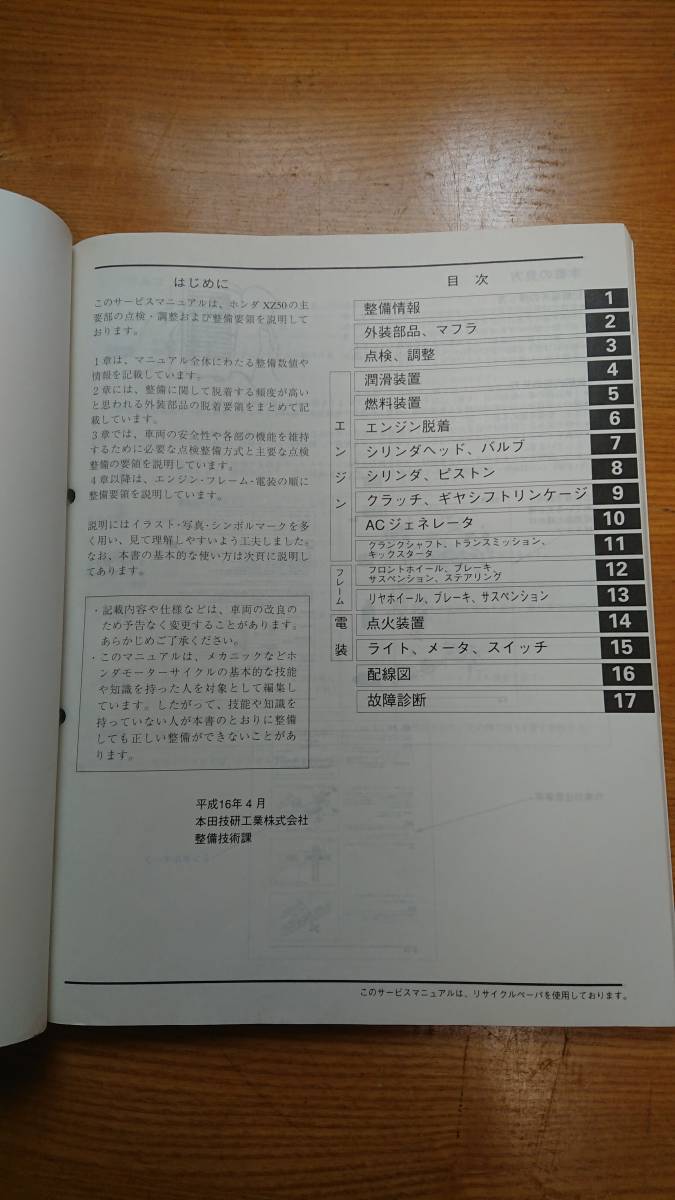 はじめに
このサービスマニュアルは、ホンダ XZ50の主
要部の点検・調整および整備要領を説明して
おります。
1章は、マニュアル全体にわたる整備数値や
情報を記載しています。
2章には、整備に関して脱着する頻度が高い
と思われる外装部品の脱着要領をまとめて記
載しています。
3章では、車両の安全性や各部の機能を維持
するために必要な点検整備方式と主要な点検
整備の要領を説明しています。
4章以降は、エンジン・フレーム・電装の順に
整備要領を説明しています。
説明にはイラスト・写真・シンボルマークを多
く用い、見て理解しやすいよう工夫しました。
なお、本書の基本的な使い方は次頁に説明し
てあります。
・記載内容や仕様などは、車両の改良の
ため予告なく変更することがあります。
あらかじめご了承ください。
・このマニュアルは、メカニックなどホ
ンダモーターサイクルの基本的な技能
や知識を持った人を対象として編集し
ています。したがって、技能や知識を
持っていない人が本書のとおりに整備
しても正しい整備ができないことがあ
ります。
平成16年4月
本田技研工業株式会社
整備技術課
目 次
整備情報 1
外装部品、マフラ 2
点検、調整 3
エンジン
潤滑装置 4
燃料装置 5
エンジン脱着 6
シリンダヘッド、バルブ 7
シリンダ、ピストン 8
クラッチ、ギヤシフトリンケージ 9
ACジェネレータ 10
クランクシャフト、トランスミッション、
キックスタータ 11
フレーム
フロントホイール、ブレーキ、
サスペンション、ステアリング 12
リヤホイール、ブレーキ、サスペンション 13
電装
点火装置 14
ライト、メータ、スイッチ 15
配線図 16
故障診断 17
このサービスマニュアルは、リサイクルペーパを使用しております。